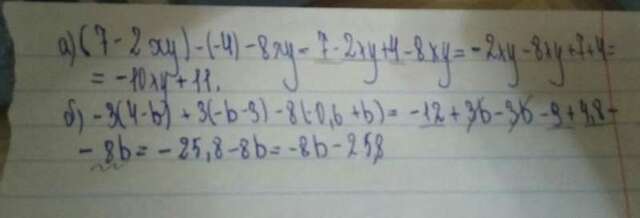 а) (7 - 2xy) - (-4) - 8xy = 7 - 2xy + 4 - 8xy = - 2xy - 8xy + 7 + 4 =
= -10xy + 11.
б) -3(4-b) + 3(-b-3) - 8(-0,6 + b) = -12 + 3b - 3b - 9 + 4,8 -
- 8b = - 25,8 - 8b = -8b - 25,8